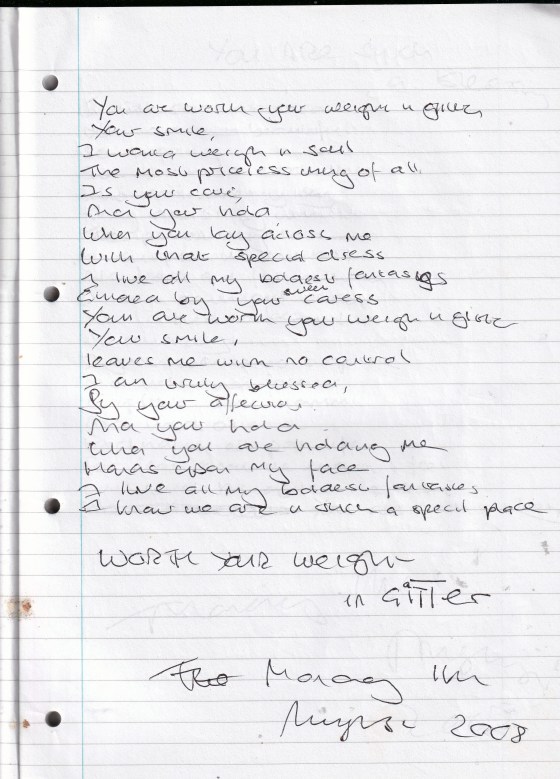 You are worth your weight in glitter,
Your smile,
I would weigh in
The most priceless thing of all.
Is your care,
And your hold
When you lay across me
With that special dress
I live all my boldest fantasies
by your sweet caress
Your are worth your weight in glitter
Your smile,
leaves me with no control
I am truly blessed,
By your affection.
And your hold
When you are holding me
Hands upon my face
I live all my boldest fantasies
I know we are in such a special place
WORTH YOUR weight
in GliTTer
2008